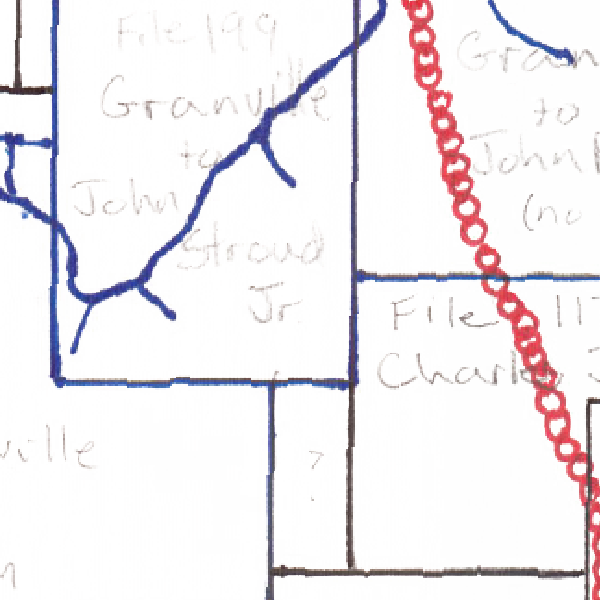 File 199
Granville
to
John
Stroud
Jr.
Gran
to
John
(no
File 117
Charles J
ville
?